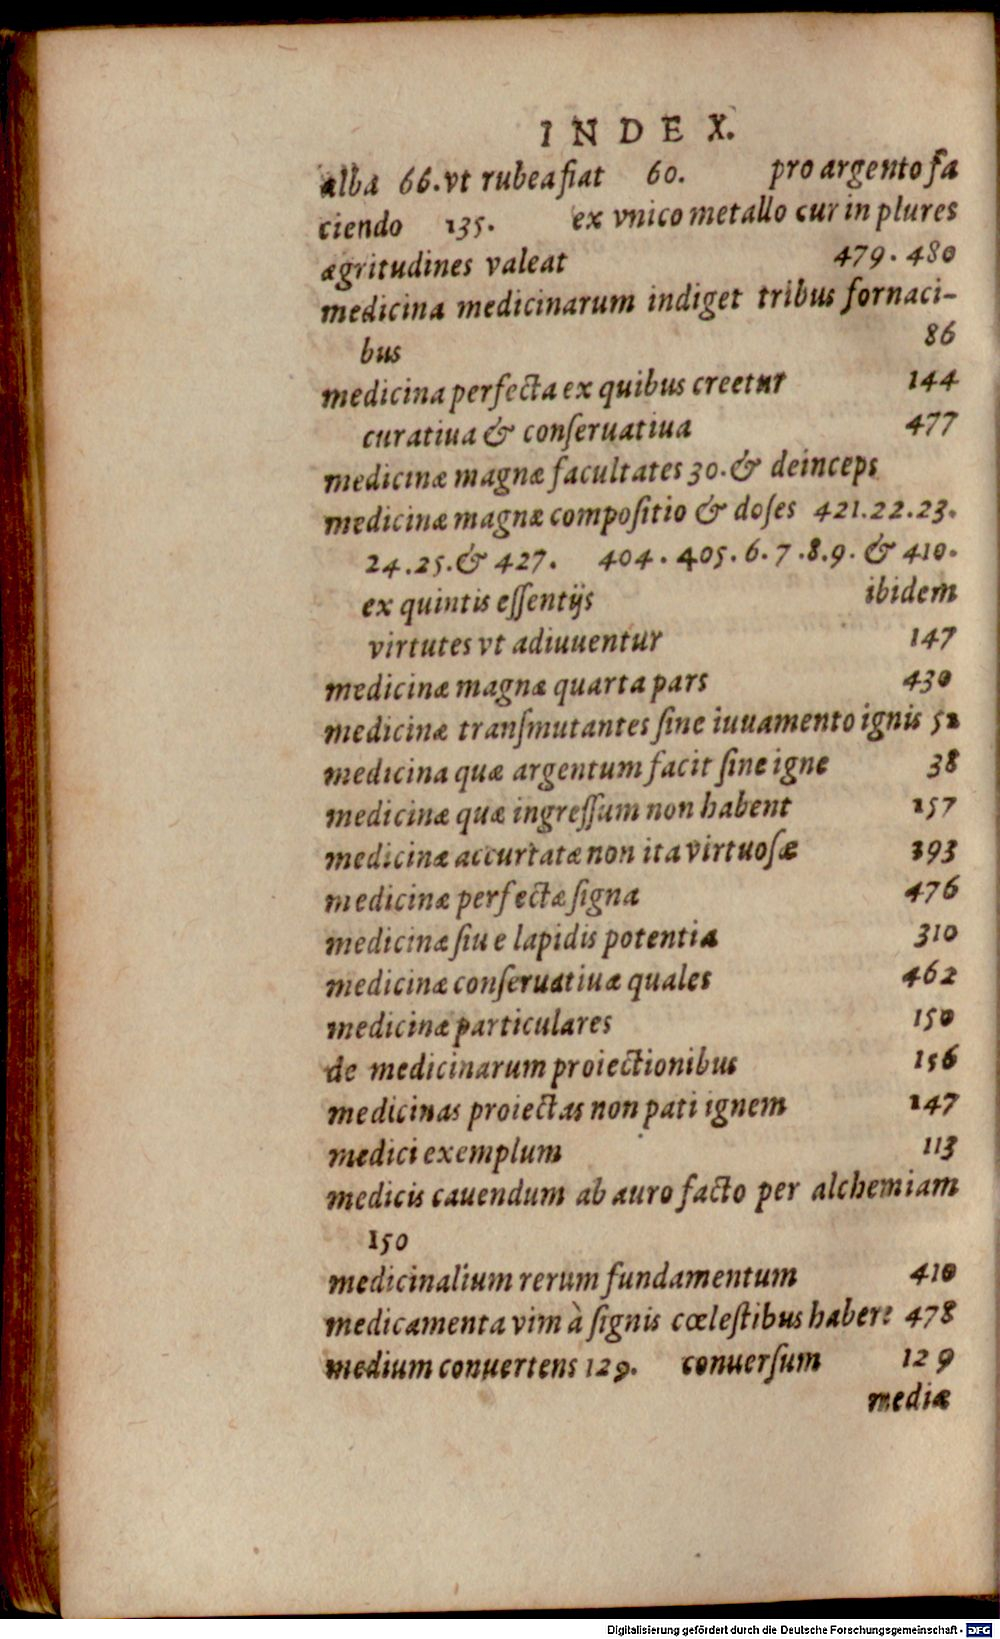 INDEX.
alba 66. vt rubea fiat 60. pro argento fa
ciendo 135. ex vnico metallo cur in plures
ægritudines valeat 479. 480
medicina medicinarum indiget tribus fornaci-
bus 86
medicina perfecta ex quibus creetur 144
curatiua & conſeruatiua 477
medicinæ magnæ facultates 30. & deinceps
medicinæ magnæ compoſitio & doſes 421.22.23.
24.25. & 427. 404. 405. 6. 7. 8. 9. & 410.
ex quintis eſſentijs ibidem
virtutes vt adiuuentur 147
medicinæ magnæ quarta pars 430
medicinæ tranſmutantes ſine iuuamento ignis 52
medicina quæ argentum facit ſine igne 38
medicinæ quæ ingreſſum non habent 157
medicinæ accurtatæ non ita virtuoſæ 393
medicinæ perfectæ ſigna 476
medicinæ ſiu e lapidis potentia 310
medicinæ conſeruatiuæ quales 462
medicinæ particulares 150
de medicinarum proiectionibus 156
medicinas proiectas non pati ignem 147
medici exemplum 113
medicis cauendum ab auro facto per alchemiam
150
medicinalium rerum fundamentum 410
medicamenta vim à ſignis cœleſtibus habere 478
medium conuertens 129. conuerſum 129
mediæ
Digitalisierung gefördert durch die Deutsche Forschungsgemeinschaft - DFG